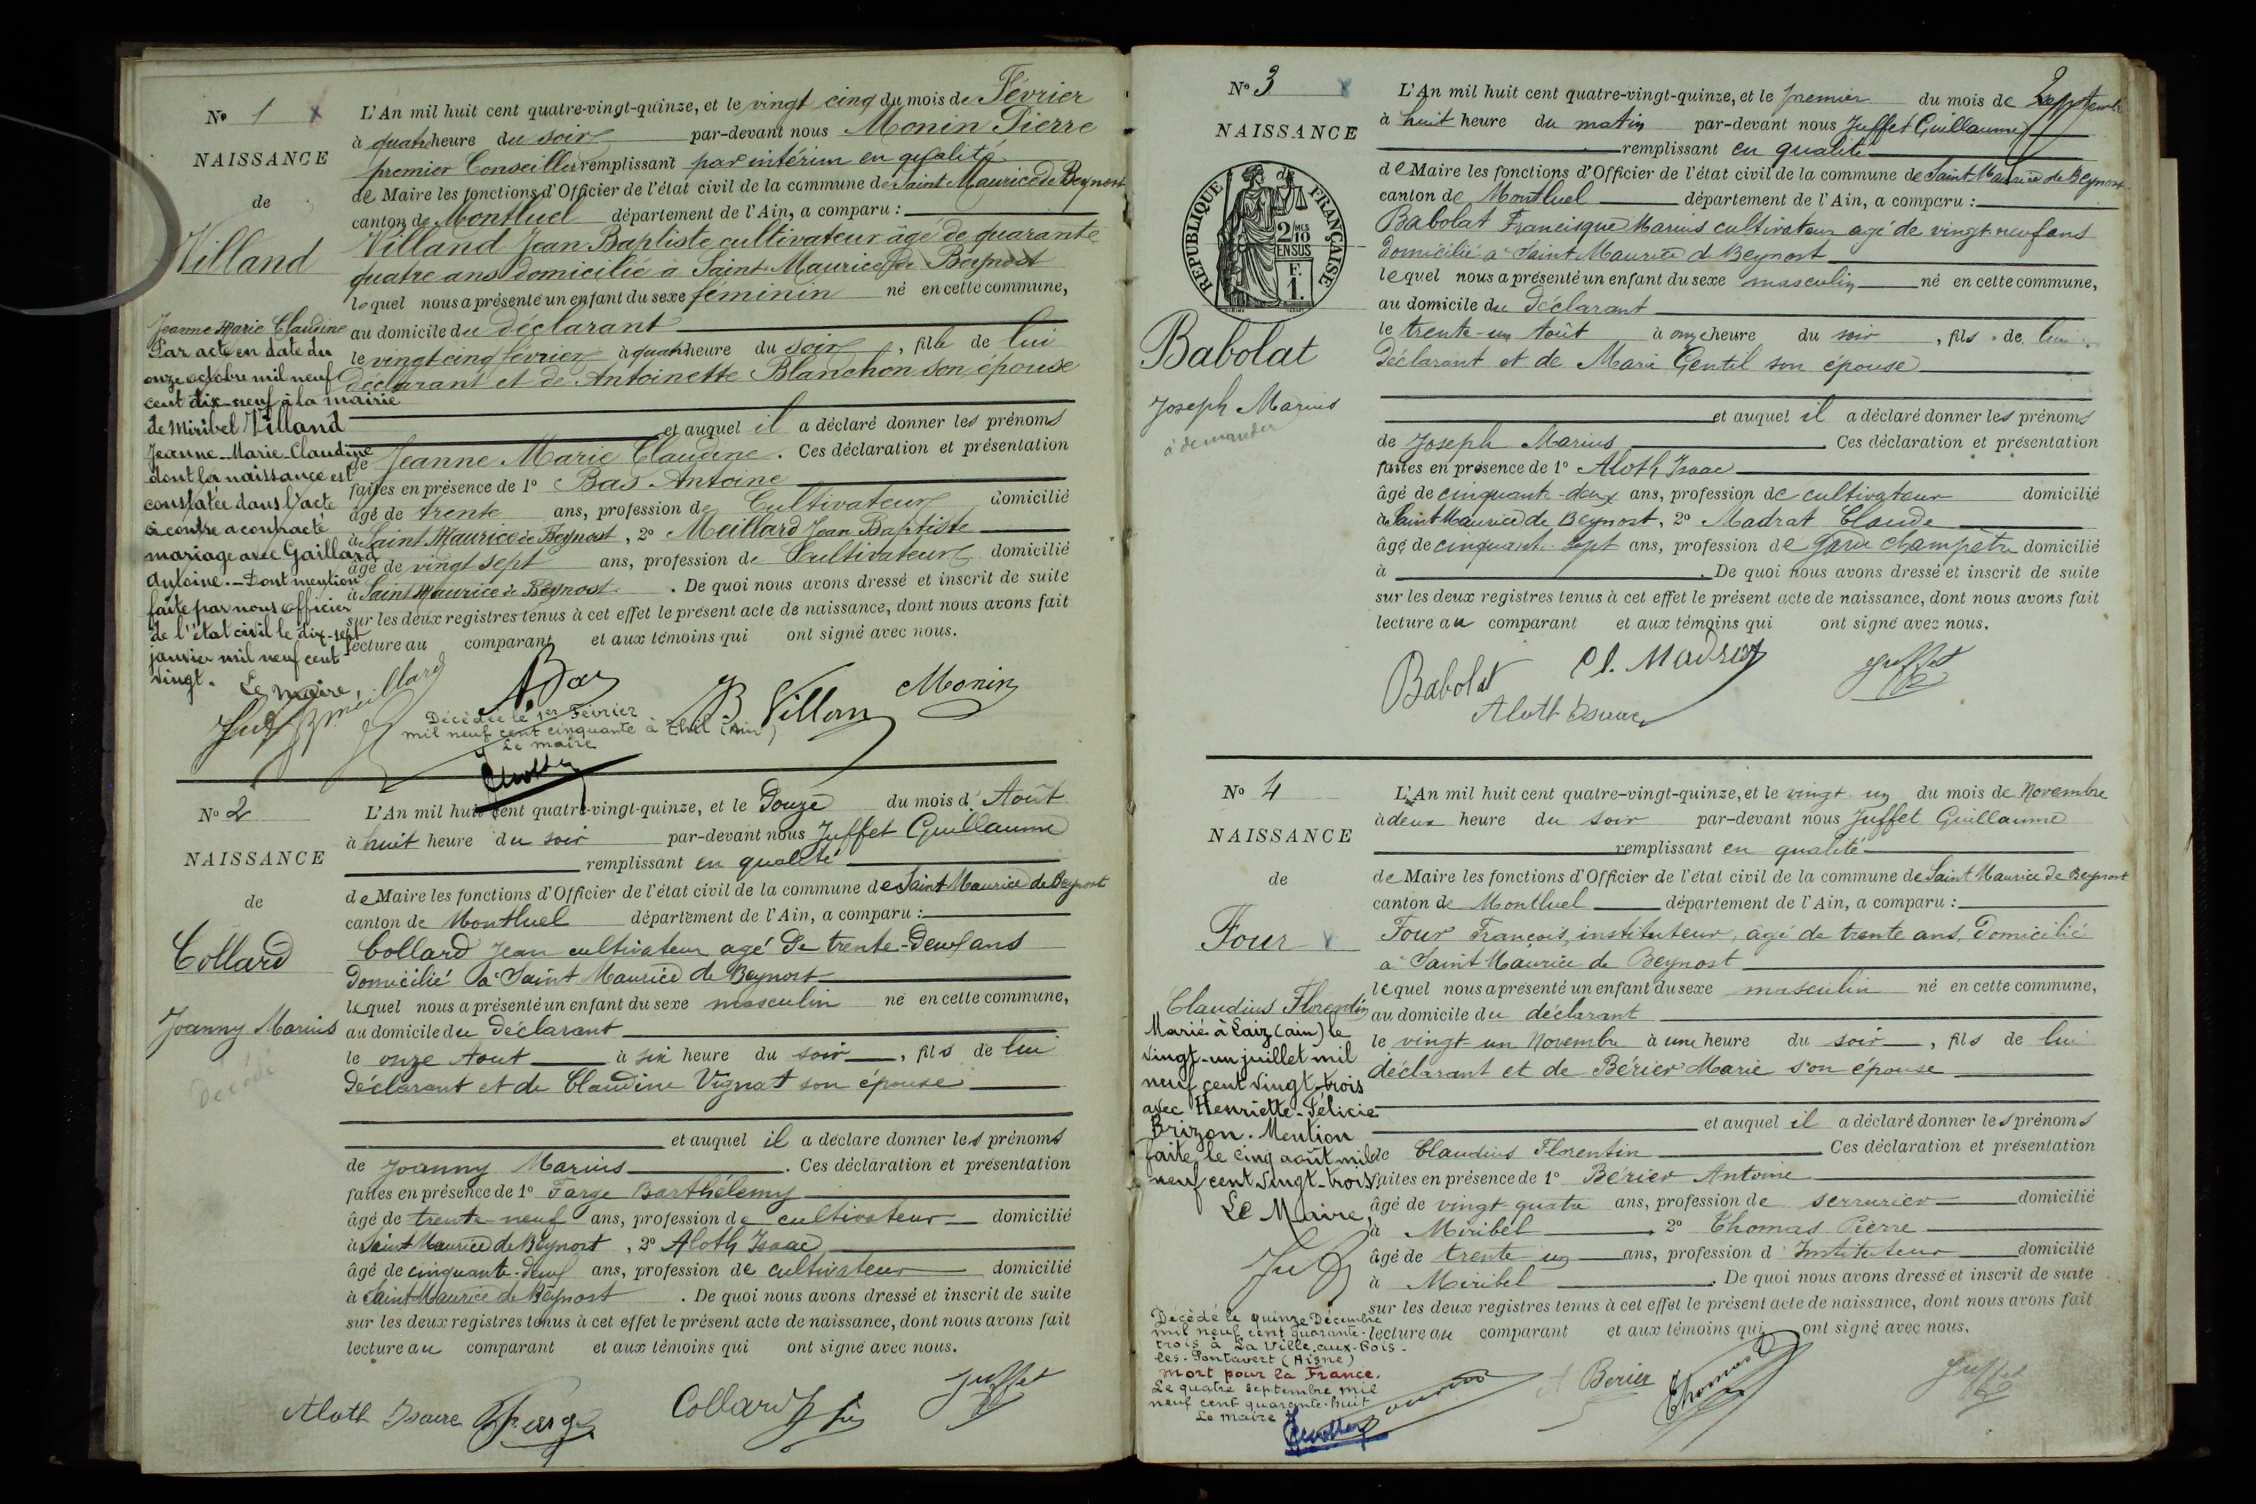 N° 1
NAISSANCE
de
Villand
Jeanne Marie Claudine
Par acte en date du
onze octobre mil neuf
cent dix-neuf à la mairie
de Miribel Villand
Jeanne-Marie-Claudine
dont la naissance est
constatée dans l'acte
ci contre a contracté
mariage avec Gaillard
Antoine. – Dont mention
faite par nous officier
de l'état civil le dix-sept
janvier mil neuf cent
vingt.
Le maire,
L'An mil huit cent quatre-vingt-quinze, et le vingt cinq du mois de Février
à quatre heure du soir par-devant nous Monin Pierre
premier Conseiller remplissant par intérim en qualité
de Maire les fonctions d'Officier de l'état civil de la commune de Saint Maurice de Beynost
canton de Montluel département de l'Ain, a comparu :
Villand Jean Baptiste cultivateur âgé de quarante
quatre ans domicilié à Saint Maurice de Beynost
lequel nous a présenté un enfant du sexe féminin né en cette commune,
au domicile du déclarant
le vingt cinq février à quatre heure du soir, fille de lui
déclarant et de Antoinette Blanchon son épouse
et auquel il a déclaré donner les prénoms
de Jeanne Marie Claudine. Ces déclaration et présentation
faites en présence de 1° Bas Antoine
âgé de trente ans, profession de Cultivateur domicilié
à Saint Maurice de Beynost, 2° Meillard Jean Baptiste
âgé de vingt sept ans, profession de Cultivateur domicilié
à Saint Maurice de Beynost. De quoi nous avons dressé et inscrit de suite
sur les deux registres tenus à cet effet le présent acte de naissance, dont nous avons fait
lecture au comparant et aux témoins qui ont signé avec nous.
Meillard
A Bas
B Villan
Monin
Décédée le 1er Février
mil neuf cent cinquante à Thil (Ain)
Le maire
N° 2
NAISSANCE
de
Collard
Joanny Marius
Décédé
L'An mil huit cent quatre-vingt-quinze, et le Douze du mois d'Août
à huit heure du soir par-devant nous Juffet Guillaume
remplissant en qualité
de Maire les fonctions d'Officier de l'état civil de la commune de Saint Maurice de Beynost
canton de Montluel département de l'Ain, a comparu :
Collard Jean cultivateur agé de trente-deux ans
Domicilié à Saint Maurice de Beynost
lequel nous a présenté un enfant du sexe masculin né en cette commune,
au domicile du déclarant
le onze Aout à six heure du soir, fils de lui
Déclarant et de Claudine Vignat son épouse
et auquel il a déclaré donner les prénoms
de Joanny Marius. Ces déclaration et présentation
faites en présence de 1° Farge Barthélemy
âgé de trente neuf ans, profession de cultivateur domicilié
à Saint Maurice de Beynost, 2° Aloth Isaac
âgé de cinquante-deux ans, profession de cultivateur domicilié
à Saint Maurice de Beynost. De quoi nous avons dressé et inscrit de suite
sur les deux registres tenus à cet effet le présent acte de naissance, dont nous avons fait
lecture au comparant et aux témoins qui ont signé avec nous.
Aloth Isaac
Farge
Collard
Juffet
N° 3
2
NAISSANCE
REPUBLIQUE FRANÇAISE
2/10
EN SUS
F.
1.
Babolat
Joseph Marius
à demander
L'An mil huit cent quatre-vingt-quinze, et le premier du mois de Septembre
à huit heure du matin par-devant nous Juffet Guillaume
remplissant en qualité
de Maire les fonctions d'Officier de l'état civil de la commune de Saint Maurice de Beynost
canton de Montluel département de l'Ain, a comparu :
Babolat Francisque Marius cultivateur agé de vingt neuf ans
Domicilié à Saint Maurice d Beynost
lequel nous a présenté un enfant du sexe masculin né en cette commune,
au domicile du Déclarant
le trente-un Août à onze heure du soir, fils de lui
Déclarant et de Marie Gentil son épouse
et auquel il a déclaré donner les prénoms
de Joseph Marius. Ces déclaration et présentation
faites en présence de 1° Aloth Isaac
âgé de cinquante-deux ans, profession de cultivateur domicilié
à Saint Maurice de Beynost, 2° Madrat Claude
âgé de cinquante-sept ans, profession de Garde champêtre domicilié
à . De quoi nous avons dressé et inscrit de suite
sur les deux registres tenus à cet effet le présent acte de naissance, dont nous avons fait
lecture au comparant et aux témoins qui ont signé avec nous.
Babolat
Cl. Madrat
Juffet
Aloth Isaac
N° 4
NAISSANCE
de
Four
Claudius Florentin
Marié à Laiz (ain) le
vingt-un juillet mil
neuf cent vingt-trois
avec Henriette-Félicie
Brizon. Mention
faite le cinq août mil
neuf cent vingt-trois.
Le Maire,
Décédé le quinze Décembre
mil neuf cent quarante-
trois à La Ville-aux-Bois-
les-Pontavert (Aisne)
Mort pour la France.
Le quatre septembre mil
neuf cent quarante-huit
Le maire
L'An mil huit cent quatre-vingt-quinze, et le vingt un du mois de Novembre
à deux heure du soir par-devant nous Juffet Guillaume
remplissant en qualité
de Maire les fonctions d'Officier de l'état civil de la commune de Saint Maurice de Beynost
canton de Montluel département de l'Ain, a comparu :
Four François, instituteur, âgé de trente ans, Domicilié
à Saint Maurice de Beynost
lequel nous a présenté un enfant du sexe masculin né en cette commune,
au domicile du déclarant
le vingt un Novembre à une heure du soir, fils de lui
déclarant et de Bérier Marie son épouse
et auquel il a déclaré donner les prénoms
de Claudius Florentin Ces déclaration et présentation
faites en présence de 1° Bérier Antoine
âgé de vingt-quatre ans, profession de serrurier domicilié
à Miribel 2° Thomas Pierre
âgé de trente un ans, profession d'Instituteur domicilié
à Miribel. De quoi nous avons dressé et inscrit de suite
sur les deux registres tenus à cet effet le présent acte de naissance, dont nous avons fait
lecture au comparant et aux témoins qui ont signé avec nous.
A Berier
Thomas
Juffet